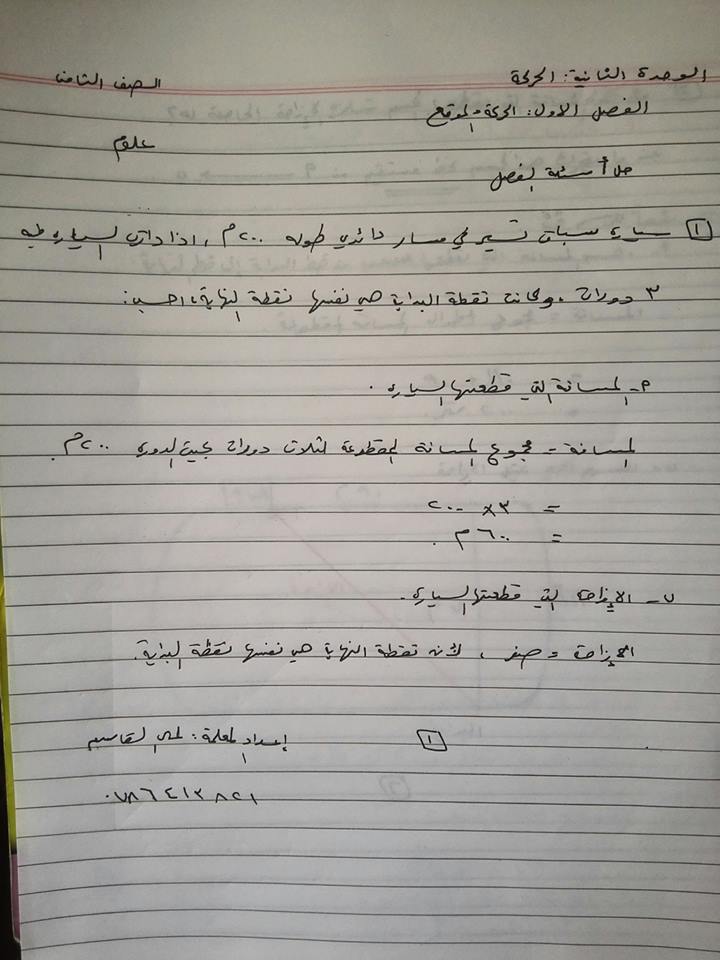 الوحدة الثانية: الحركة الصف الثامن
الفصل الاول: الحركة والموقع
علوم
حل أسئلة الفصل
١ سيارة سباق تسير في مسار دائري طوله ٢٠٠ م، اذا دارت السيارة فيه
٣ دورات، وكانت نقطة البداية هي نفسها نقطة النهاية، احسب:
٢- المسافة التي قطعتها السيارة.
المسافة = مجموع المسافة المقطوعة لثلاث دورات بحيث الدورة ٢٠٠ م.
= ٣ × ٢٠٠
= ٦٠٠ م.
ب- الإزاحة التي قطعتها السيارة.
الإزاحة = صفر، لأن نقطة النهاية هي نفسها نقطة البداية.
١ إعداد المعلمة: لمى القاسم